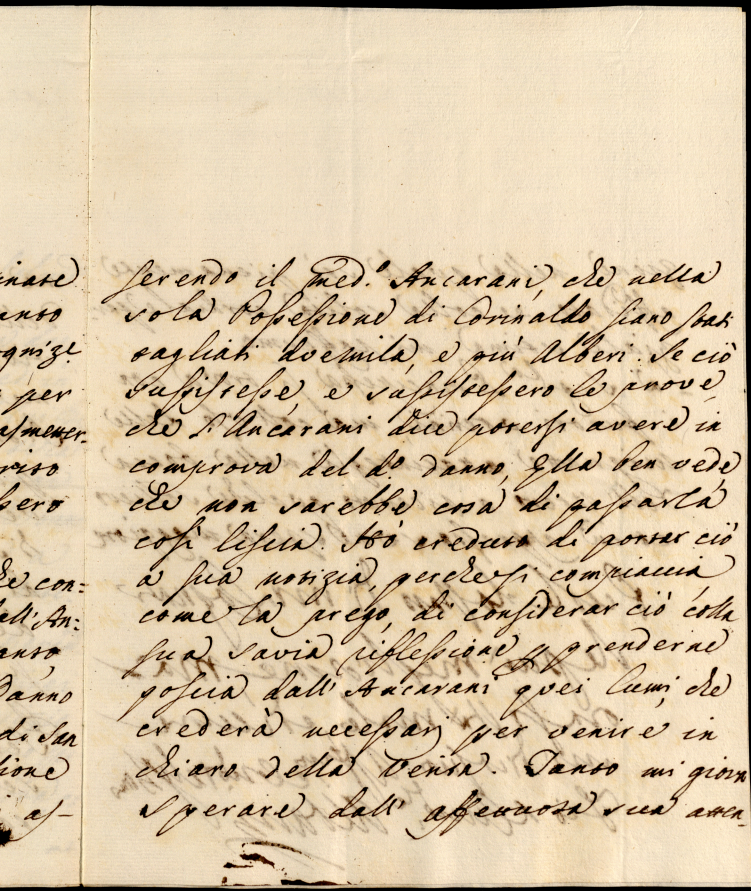 inase
anto
ognize
per
asmetter-
rito
bero
che con=
dell'An=
anto
Danno
di San
sione
as-
serendo il med.º Ancarani, che nella
sola Possessione di Corinaldo siano stati
tagliati duemila, e più Alberi. Se ciò
sussistesse, e sussistessero le prove,
che l'Ancarani dice potersi avere in
comprova del d.º Danno, Ella ben vede
che non sarebbe cosa di passarla
così liscia. Hò creduto di portar ciò
a sua notizia, perche si compiaccia,
come la prego, di considerar ciò colla
sua savia riflessione, e prenderne
poscia dall'Ancarani quei lumi, che
crederà necessarj per venire in
chiaro della Verità. Tanto mi giova
sperare dall'affettuosa sua atten-